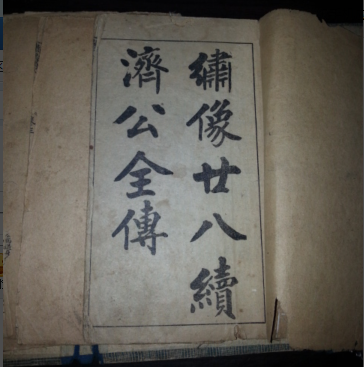 繡像廿八續
濟公全傳